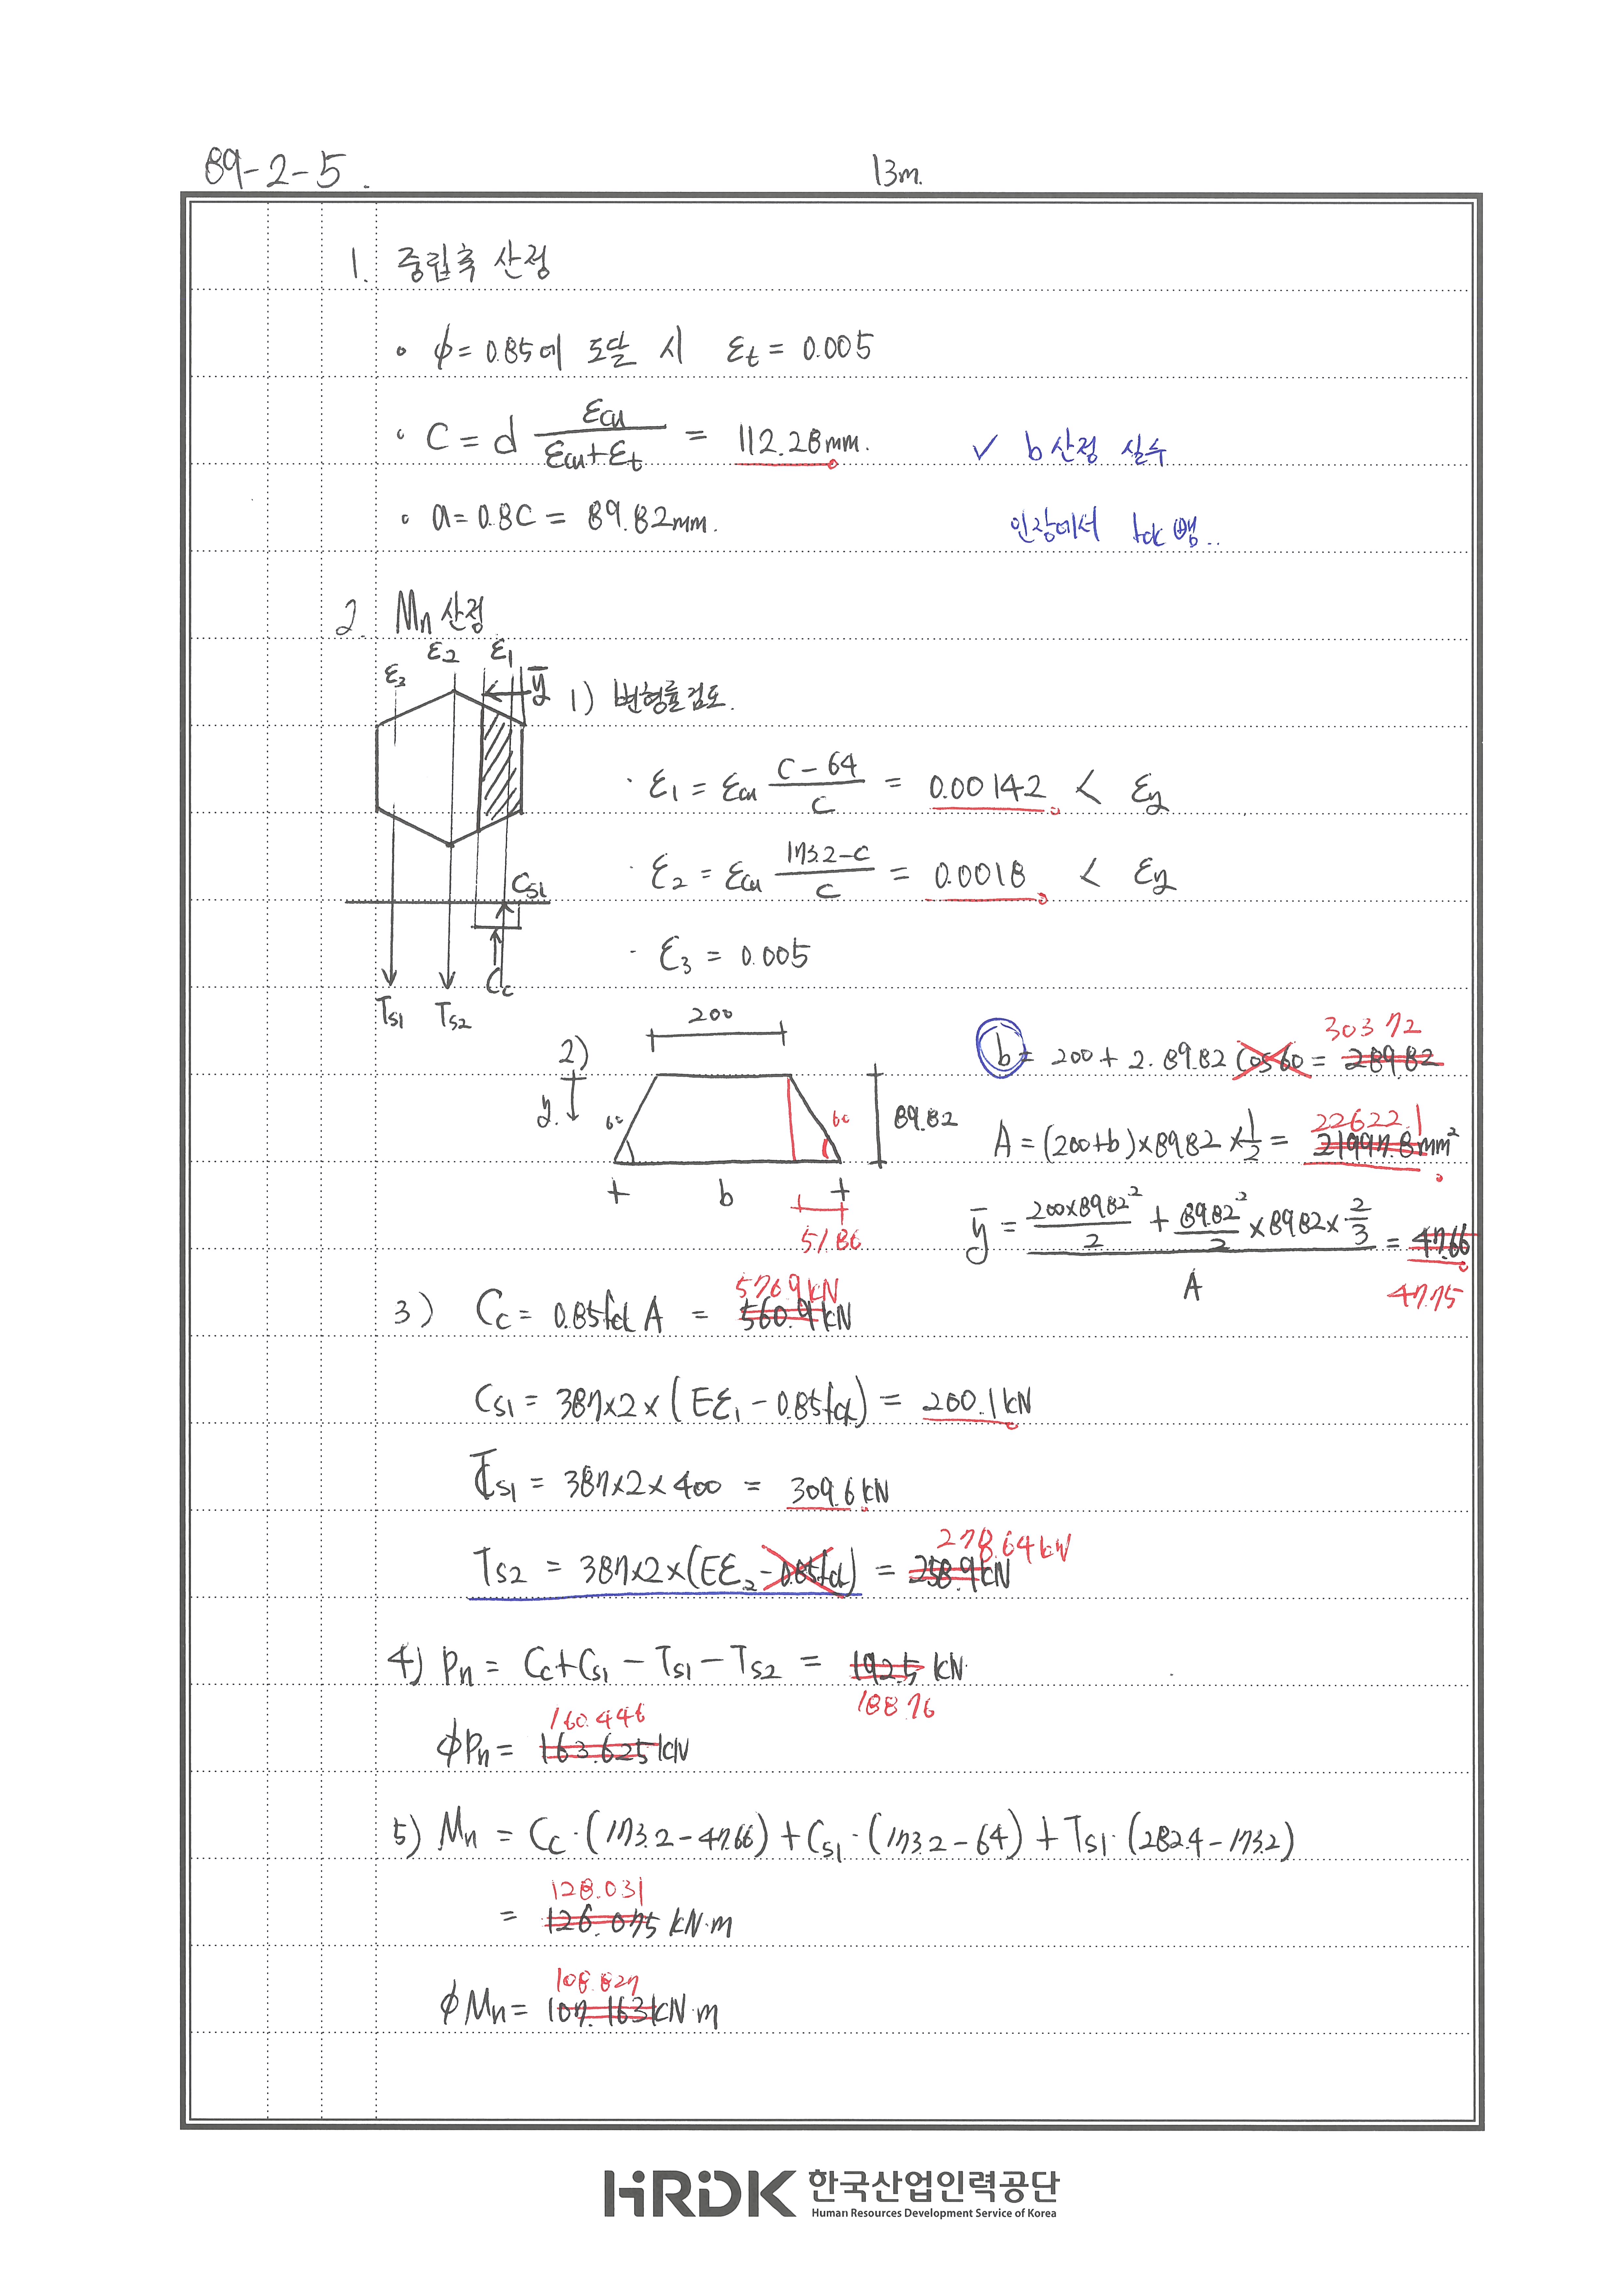 89-2-5.
13m.
1. 중립축 산정
∘ ϕ= 0.85에 도달 시 εt = 0.005
∘ C = d εcu / (εcu+εt) = 112.28mm.
✓ b 산정 실수
∘ a= 0.8C = 89.82mm.
인장에서 fck 뺌..
2. Mn 산정
ε3 ε2 ε1 ȳ
1) 변형률검토.
· ε1 = εcu (C-64)/C = 0.00142 < εy
· ε2 = εcu (173.2-C)/C = 0.0018 < εy
Cs1
· ε3 = 0.005
Cc
Ts1 Ts2
2) 200
y. 60 60 89.82
b
51.86
303.72
b= 200 + 2. 89.82 cos60 = 289.82
22622.1
A = (200+b)×89.82×1/2 = 21997.8mm²
ȳ = (200×89.82²/2 + 89.82²/2 ×89.82×2/3) / A = 47.66
47.75
576.9kN
3) Cc = 0.85fck A = 560.9kN
Cs1 = 387×2×(Eε1 - 0.85fck) = 200.1kN
Ts1 = 387×2×400 = 309.6kN
278.64kN
Ts2 = 387×2×(Eε2 - 0.85fck) = 258.9kN
4) Pn = Cc+Cs1 - Ts1 - Ts2 = 192.5 kN
188.76
160.446
ϕPn = 163.625kN
5) Mn = Cc·(173.2-47.66)+Cs1·(173.2-64)+Ts1·(282.4-173.2)
128.031
= 126.075 kN·m
108.827
ϕMn= 107.163kN·m
HRDK 한국산업인력공단
Human Resources Development Service of Korea